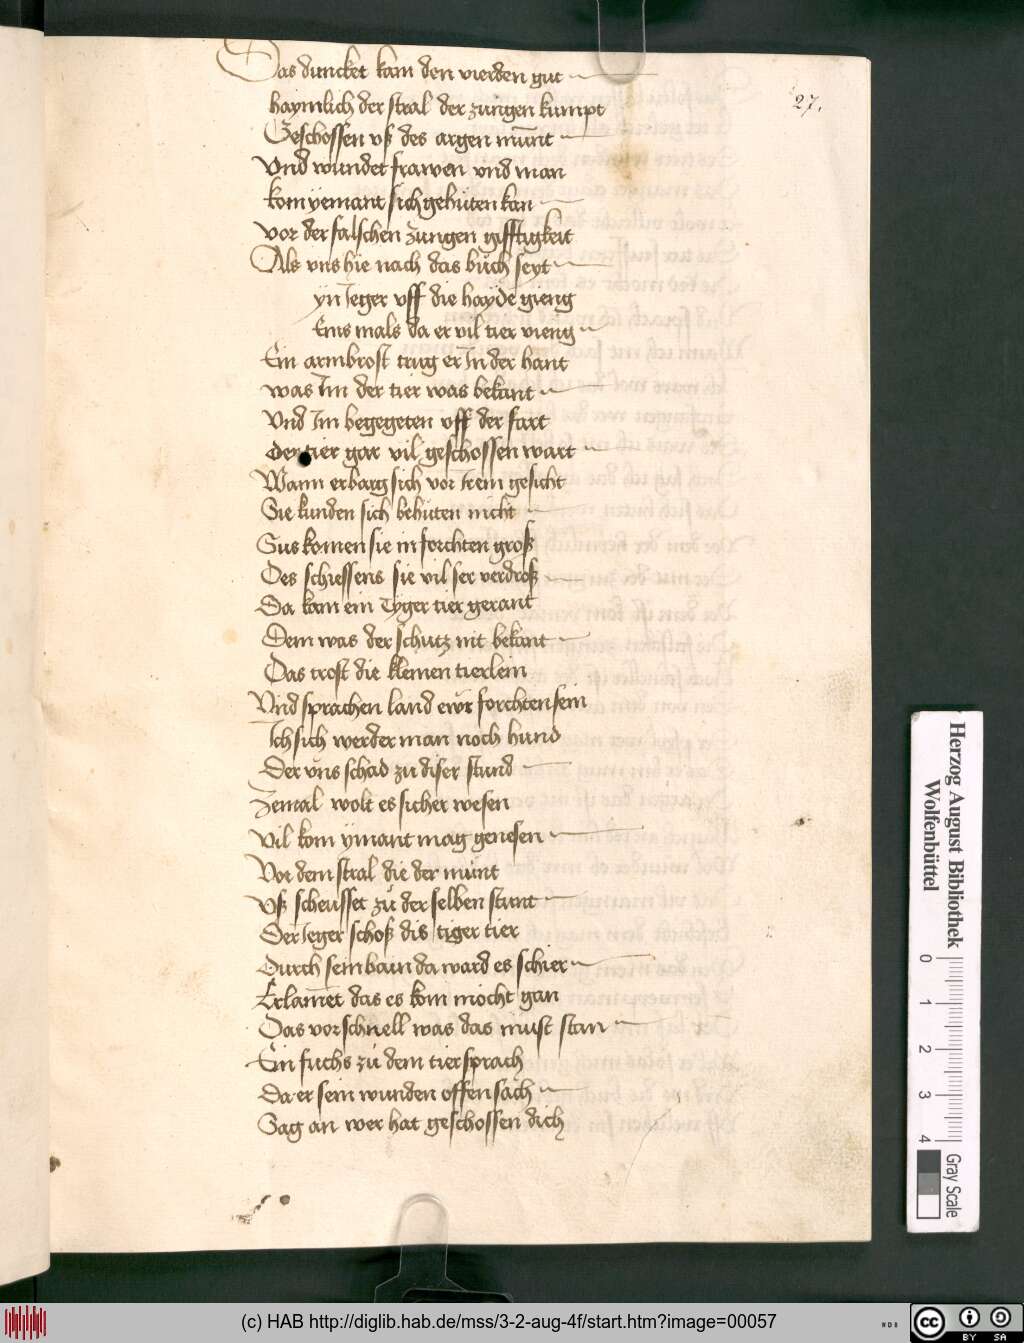 Das duncket kam den vierden gut
27.
haymlich der stral der zungen kumpt
Geschossen vß des argen mu̅nt
Vnd wundet frawen vnd man
kom yemant sich gehüten kan
vor der falschen zungen gifftigkeit
Als vns hie nach das bůch seyt
yn Jeger vff die hayde gieng
Eins mals da er vil tier vieng
Ein armbrost trug er In der hant
was Im der tier was bekant
Vnd Im begegeten vff der fart
Der tier gar vil geschossen wart
Wann er barg sich vor Irem gesicht
Sie kunden sich behüten nicht
Sus komen sie in forchten groß
Des schiessens sie vil ser verdroß
Da kam ein Tyger tier gerant
Dem was der schutz nit bekant
Das trost die kleinen tierlein
Vnd sprachen land ewr forchten sein
Ich sich werder man noch hund
Der vns schad zu diser stund
Zemal wolt es sicher wesen
vil kom ymant mag genesen
Vor dem stral die der munt
vß scheusset zů der selben stunt
Der Jeger schoß dis tiger tier
Durch sein bain da ward es schier
Erlamet das es kom mocht gan
Das vor schnell was das must stan
Ein fuchs zů dem tier sprach
Da er sein wunden offen sach
Sag an wer hat geschossen dich
Herzog August Bibliothek
Wolfenbüttel
0 1 2 3 4
Gray Scale
(c) HAB http://diglib.hab.de/mss/3-2-aug-4f/start.htm?image=00057
WDB
cc BY SA